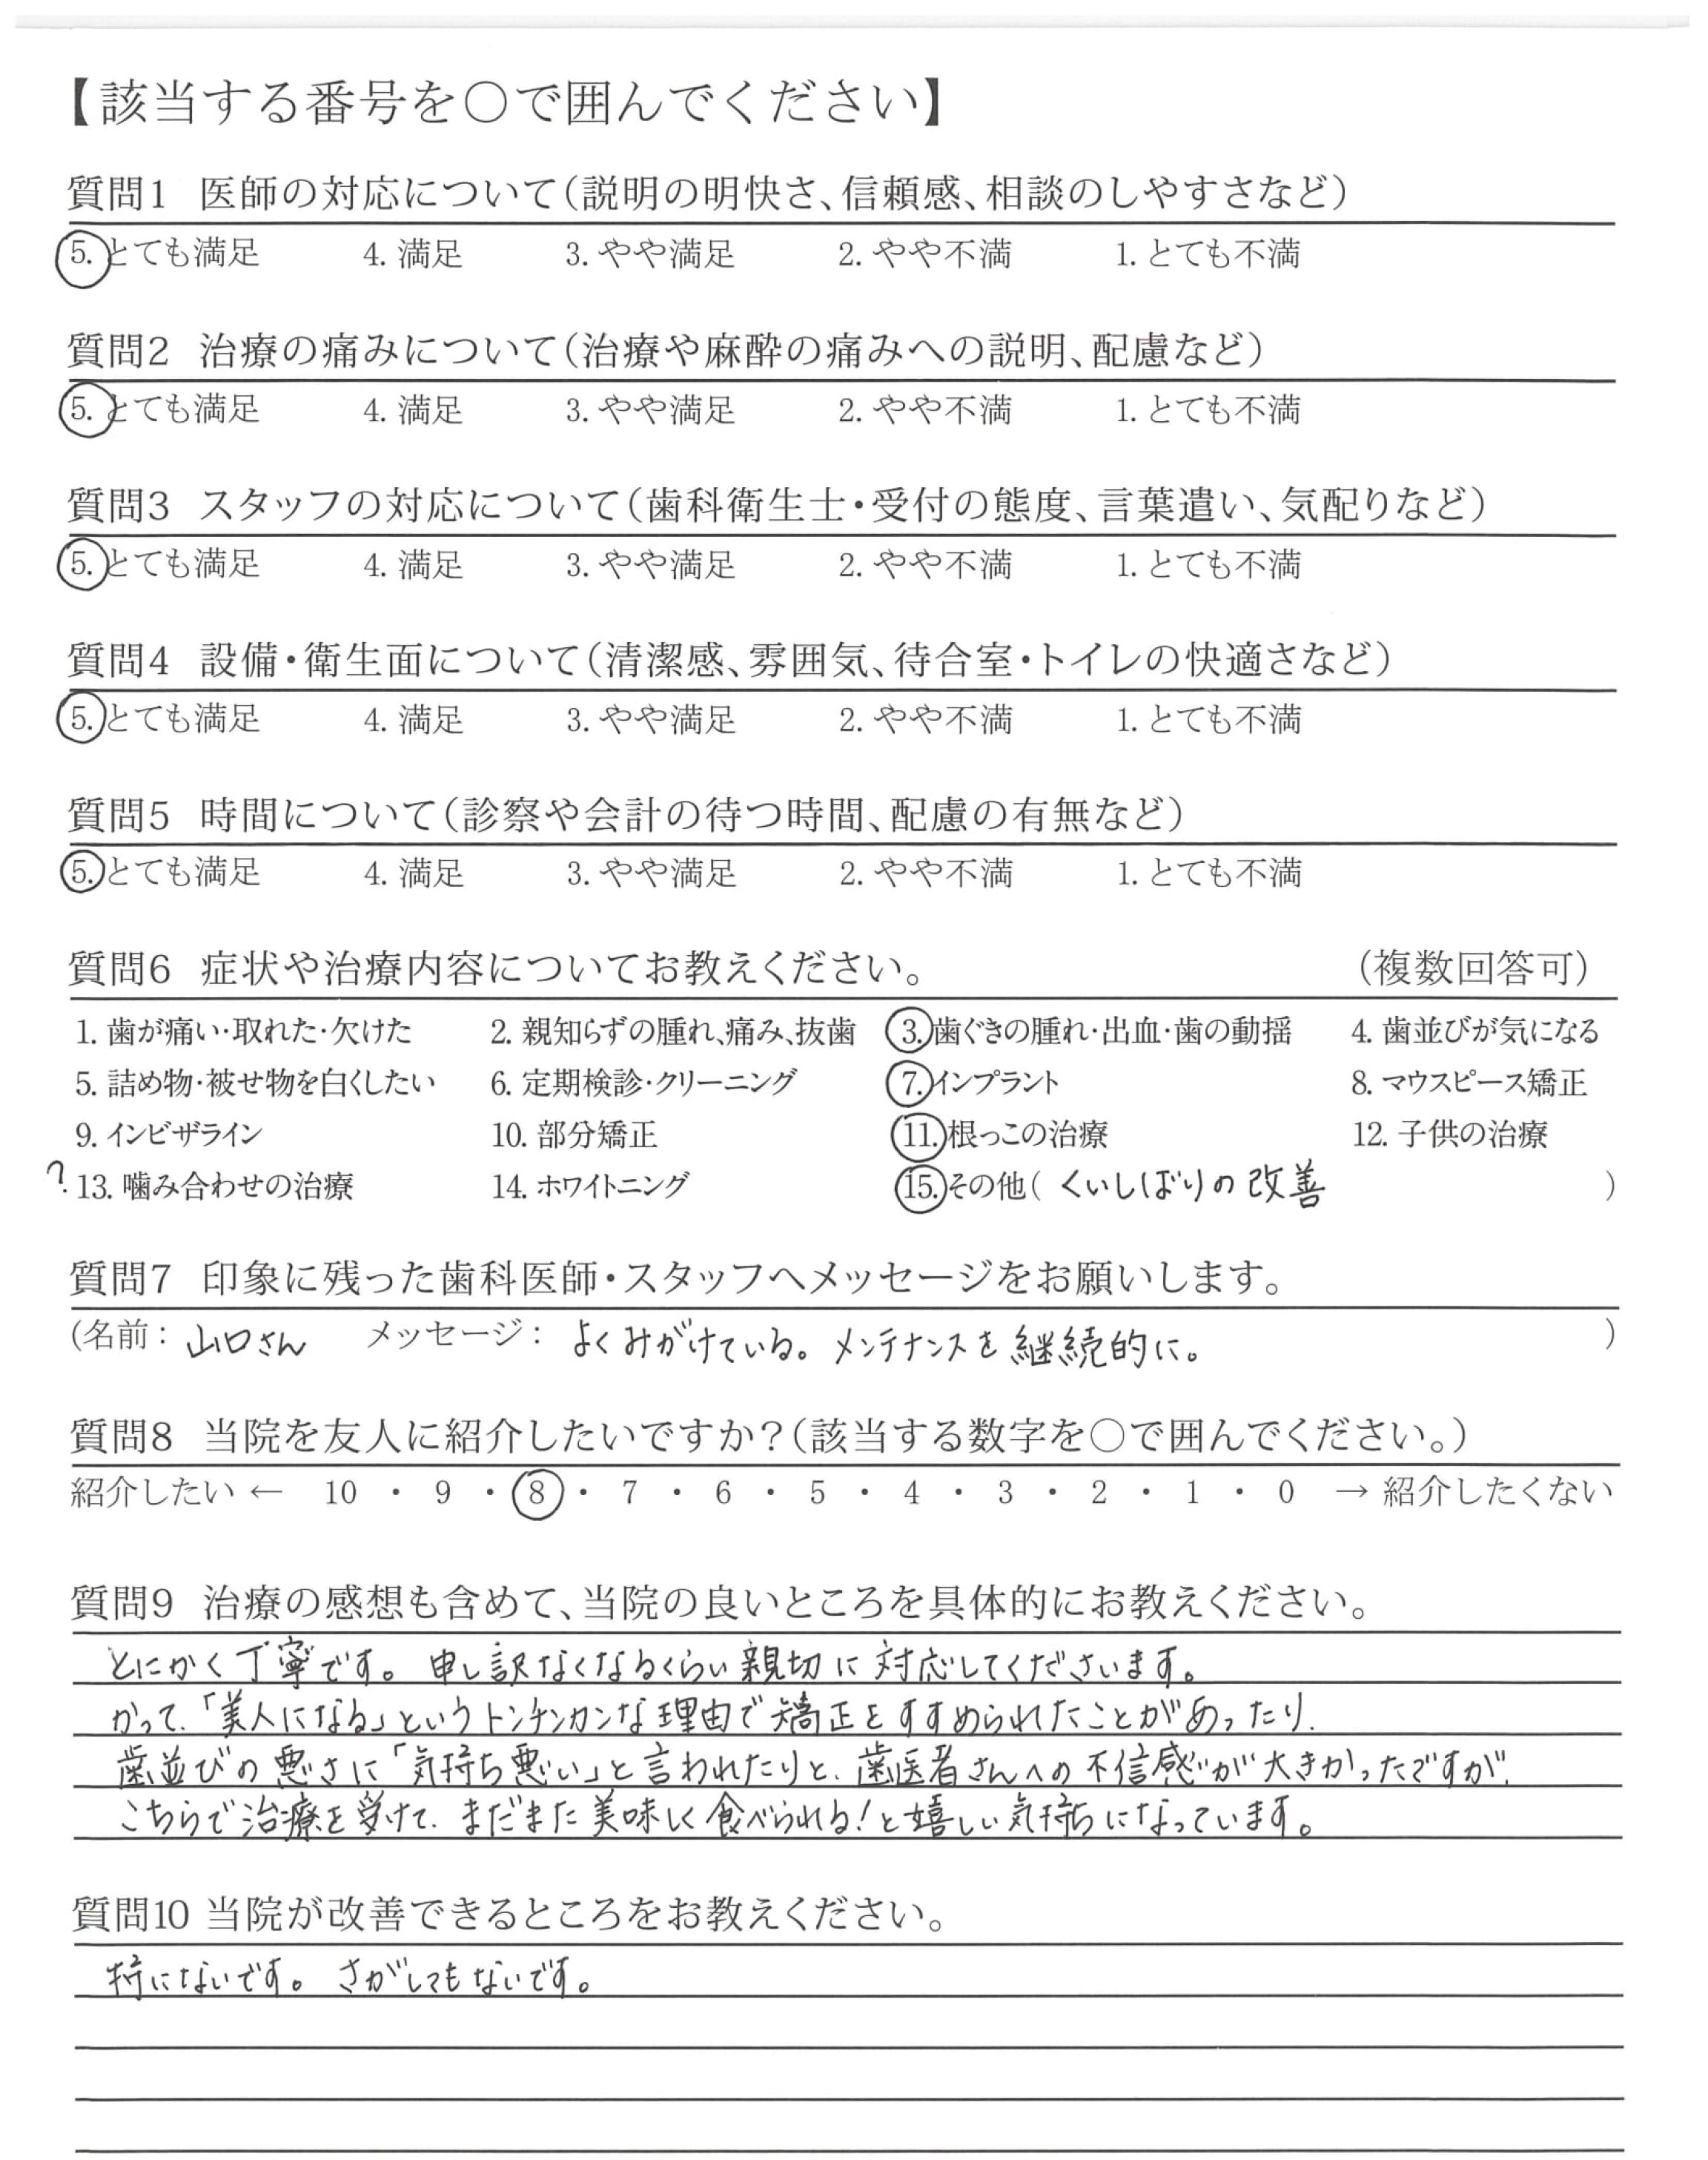 【該当する番号を○で囲んでください】
質問1 医師の対応について(説明の明快さ、信頼感、相談のしやすさなど)
5. とても満足 4. 満足 3. やや満足 2. やや不満 1. とても不満
質問2 治療の痛みについて(治療や麻酔の痛みへの説明、配慮など)
5. とても満足 4. 満足 3. やや満足 2. やや不満 1. とても不満
質問3 スタッフの対応について(歯科衛生士・受付の態度、言葉遣い、気配りなど)
5. とても満足 4. 満足 3. やや満足 2. やや不満 1. とても不満
質問4 設備・衛生面について(清潔感、雰囲気、待合室・トイレの快適さなど)
5. とても満足 4. 満足 3. やや満足 2. やや不満 1. とても不満
質問5 時間について(診察や会計の待つ時間、配慮の有無など)
5. とても満足 4. 満足 3. やや満足 2. やや不満 1. とても不満
質問6 症状や治療内容についてお教えください。 (複数回答可)
1. 歯が痛い・取れた・欠けた 2. 親知らずの腫れ、痛み、抜歯 3. 歯ぐきの腫れ・出血・歯の動揺 4. 歯並びが気になる
5. 詰め物・被せ物を白くしたい 6. 定期検診・クリーニング 7. インプラント 8. マウスピース矯正
9. インビザライン 10. 部分矯正 11. 根っこの治療 12. 子供の治療
? 13. 噛み合わせの治療 14. ホワイトニング 15. その他( くいしばりの改善 )
質問7 印象に残った歯科医師・スタッフへメッセージをお願いします。
(名前: 山口さん メッセージ: よくみがけている。メンテナンスを継続的に。 )
質問8 当院を友人に紹介したいですか?(該当する数字を○で囲んでください。)
紹介したい ← 10 ・ 9 ・ 8 ・ 7 ・ 6 ・ 5 ・ 4 ・ 3 ・ 2 ・ 1 ・ 0 → 紹介したくない
質問9 治療の感想も含めて、当院の良いところを具体的にお教えください。
とにかく丁寧です。申し訳なくなるくらい親切に対応してくださいます。
かつて、「美人になる」というトンチンカンな理由で矯正をすすめられたことがあったり、
歯並びの悪さに「気持ち悪い」と言われたりと、歯医者さんへの不信感が大きかったですが、
こちらで治療を受けて、まだまだ美味しく食べられる!と嬉しい気持ちになっています。
質問10 当院が改善できるところをお教えください。
特にないです。さがしてもないです。